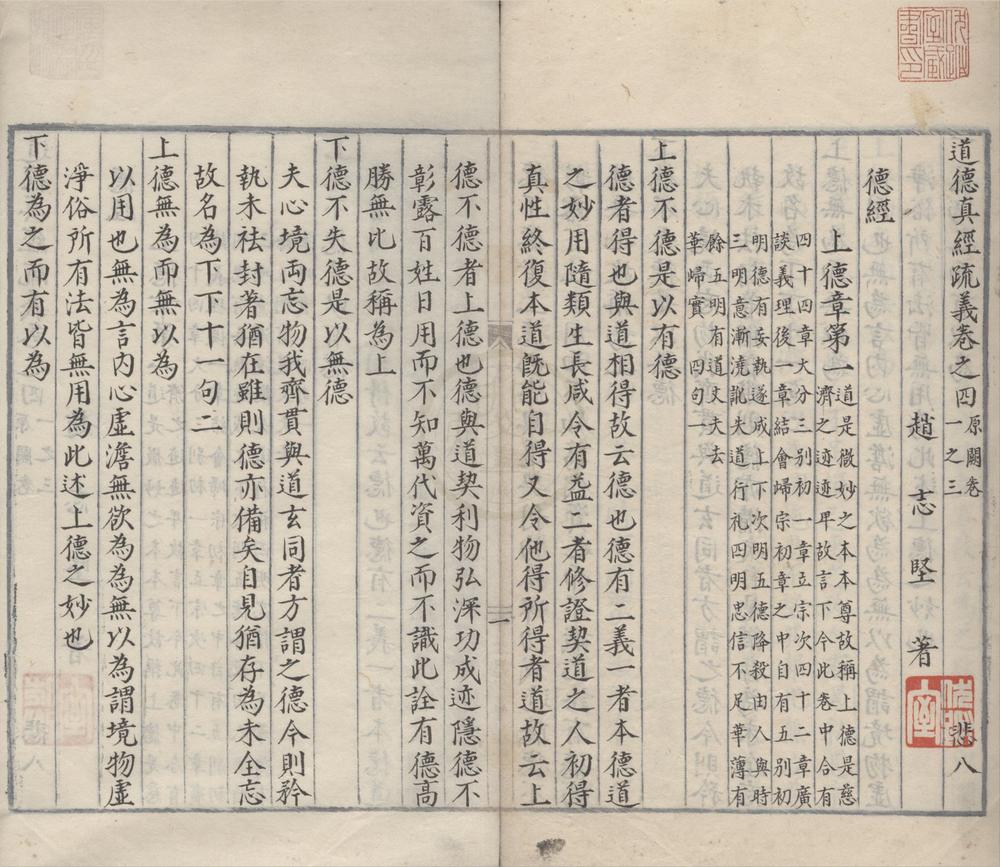 道德真經疏義卷之四原闕卷一之三 悲八
趙志堅著
德經
上德章第一道是微妙之本本尊故稱上德是慈
濟之迹迹卑故言下今此卷中合有
四十四章大分三別初一章立宗次四十二章廣
談義理後一章結會歸宗初章之中自有五別初
明德有妄執遂成上下次明五德降殺由人與時
三明意漸澆訛失道行礼四明忠信不足華薄有
餘五明有道丈夫去
華歸實 四句一
上德不德是以有德
德者得也與道相得故云德也德有二義一者本德道
之妙用隨類生長咸令有益二者修證契道之人初得
真性終復本道旣能自得又令他得所得者道故云上
德不德者上德也德與道契利物弘深功成迹隱德不
彰露百姓日用而不知萬代資之而不識此詮有德高
勝無比故稱為上
下德不失德是以無德
夫心境両忘物我齊貫與道玄同者方謂之德今則矜
執未祛封著猶在雖則德亦備矣自見猶存為未全忘
故名為下下十一句二
上德無為而無以為
以用也無為言內心虛澹無欲為為無以為謂境物虛
淨俗所有法皆無用為此述上德之妙也
下德為之而有以為